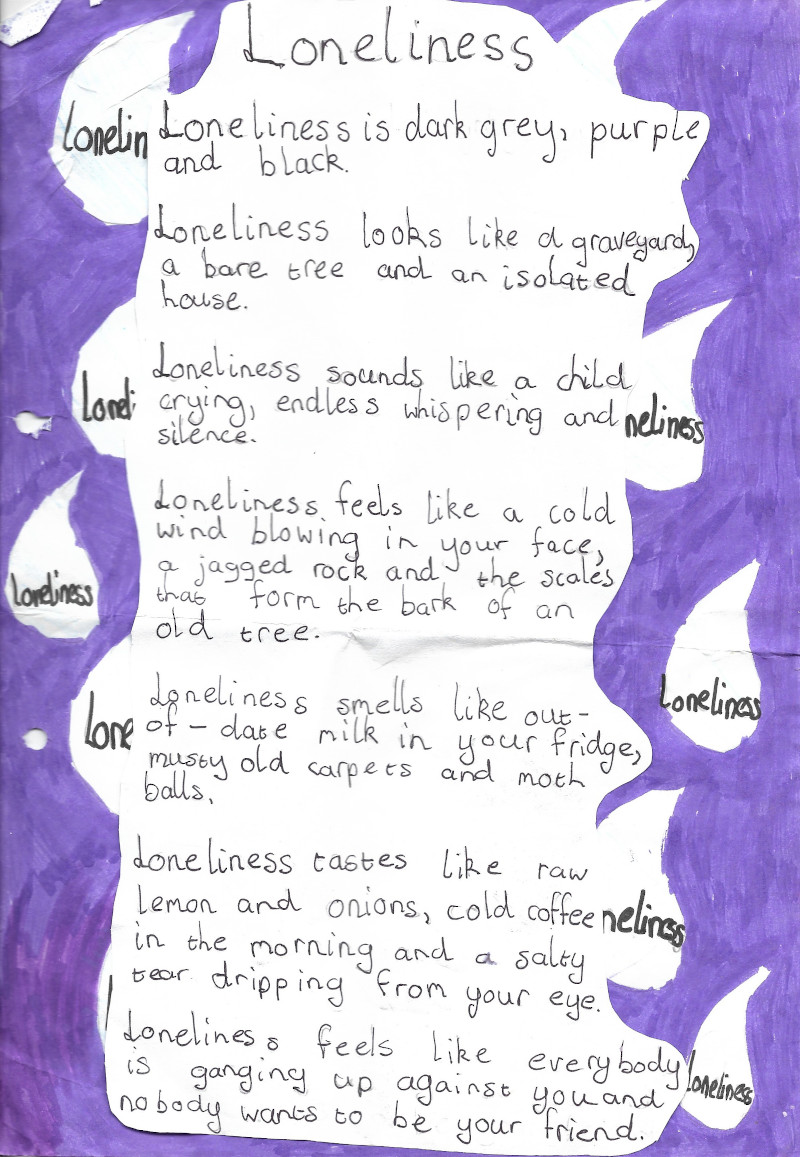 Loneliness
Loneliness is dark grey, purple
and black.
Loneliness looks like a graveyard,
a bare tree and an isolated
house.
Loneliness sounds like a child
crying, endless whispering and
silence.
Loneliness feels like a cold
wind blowing in your face,
a jagged rock and the scales
that form the bark of an
old tree.
Loneliness smells like out-
of-date milk in your fridge,
musty old carpets and moth
balls.
Loneliness tastes like raw
lemon and onions, cold coffee
in the morning and a salty
tear dripping from your eye.
Loneliness feels like everybody
is ganging up against you and
nobody wants to be your friend.
Lonelin
Loneli
neliness
Loneliness
Lone
Loneliness
neliness
l
loneliness